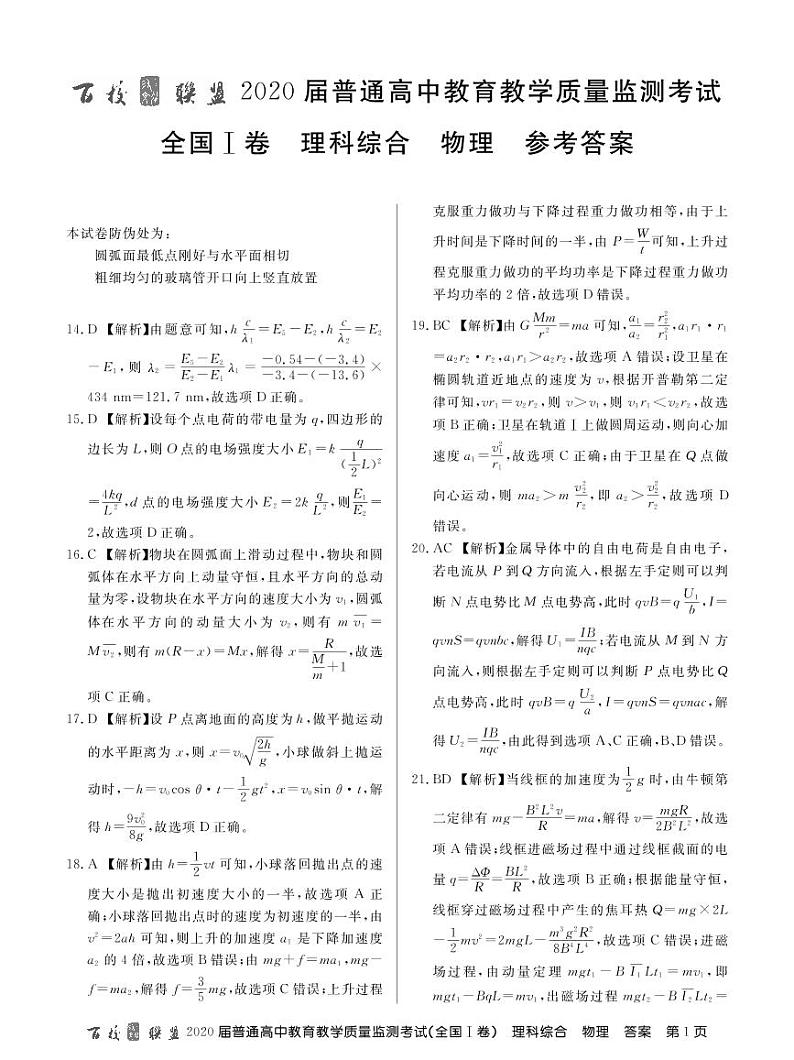 百校联盟 2020届普通高中教育教学质量监测考试
全国Ⅰ卷 理科综合 物理 参考答案
本试卷防伪处为：
圆弧面最低点刚好与水平面相切
粗细均匀的玻璃管开口向上竖直放置
14. D 【解析】由题意可知，h c/λ₁＝E₅－E₂，h c/λ₂＝E₂
－E₁，则 λ₂＝(E₅－E₂)/(E₂－E₁) λ₁＝(－0.54－(－3.4))/(－3.4－(－13.6))×
434 nm＝121.7 nm，故选项 D 正确。
15. D 【解析】设每个点电荷的带电量为 q，四边形的
边长为 L，则 O 点的电场强度大小 E₁＝k q/(½L)²
＝4kq/L²，d 点的电场强度大小 E₂＝2k q/L²，则 E₁/E₂＝
2，故选项 D 正确。
16. C 【解析】物块在圆弧面上滑动过程中，物块和圆
弧体在水平方向上动量守恒，且水平方向的总动
量为零，设物块在水平方向的速度大小为 v₁，圆弧
体在水平方向的动量大小为 v₂，则有 m v̄₁＝
M v̄₂，则有 m(R－x)＝Mx，解得 x＝R/(M/m＋1)，故选
项 C 正确。
17. D 【解析】设 P 点离地面的高度为 h，做平抛运动
的水平距离为 x，则 x＝v₀√(2h/g)，小球做斜上抛运
动时，－h＝v₀cos θ·t－½gt²，x＝v₀sin θ·t，解
得 h＝9v₀²/8g，故选项 D 正确。
18. A 【解析】由 h＝½vt 可知，小球落回抛出点的速
度大小是抛出初速度大小的一半，故选项 A 正
确；小球落回抛出点时的速度为初速度的一半，由
v²＝2ah 可知，则上升的加速度 a₁ 是下降加速度
a₂ 的 4 倍，故选项 B 错误；由 mg＋f＝ma₁，mg－
f＝ma₂，解得 f＝3/5 mg，故选项 C 错误；上升过程
克服重力做功与下降过程重力做功相等，由于上
升时间是下降时间的一半，由 P＝W/t 可知，上升过
程克服重力做功的平均功率是下降过程重力做功
平均功率的 2 倍，故选项 D 错误。
19. BC 【解析】由 G Mm/r²＝ma 可知，a₁/a₂＝r₂²/r₁²，a₁r₁·r₁
＝a₂r₂·r₂，a₁r₁＞a₂r₂，故选项 A 错误；设卫星在
椭圆轨道近地点的速度为 v，根据开普勒第二定
律可知，vr₁＝v₂r₂，则 v＞v₁，则 v₁r₁＜v₂r₂，故选
项 B 正确；卫星在轨道Ⅰ上做圆周运动，则向心加
速度 a₁＝v₁²/r₁，故选项 C 正确；由于卫星在 Q 点做
向心运动，则 ma₂＞m v₂²/r₂，即 a₂＞v₂²/r₂，故选项 D
错误。
20. AC 【解析】金属导体中的自由电荷是自由电子，
若电流从 P 到 Q 方向流入，根据左手定则可以判
断 N 点电势比 M 点电势高，此时 qvB＝q U₁/b，I＝
qvnS＝qvnbc，解得 U₁＝IB/nqc；若电流从 M 到 N 方
向流入，则根据左手定则可以判断 P 点电势比 Q
点电势高，此时 qvB＝q U₂/a，I＝qvnS＝qvnac，解
得 U₂＝IB/nqc，由此得到选项 A、C 正确，B、D 错误。
21. BD 【解析】当线框的加速度为 ½g 时，由牛顿第
二定律有 mg－B²L²v/R＝ma，解得 v＝mgR/2B²L²，故选
项 A 错误；线框进磁场过程中通过线框截面的电
量 q＝ΔΦ/R＝BL²/R，故选项 B 正确；根据能量守恒，
线框穿过磁场过程中产生的焦耳热 Q＝mg×2L
－½mv²＝2mgL－m³g²R²/8B⁴L⁴，故选项 C 错误；进磁
场过程，由动量定理 mgt₁－B Ī₁Lt₁＝mv₁，即
mgt₁－BqL＝mv₁，出磁场过程 mgt₂－B Ī₂Lt₂＝
百校联盟 2020届普通高中教育教学质量监测考试(全国Ⅰ卷) 理科综合 物理 答案 第1页